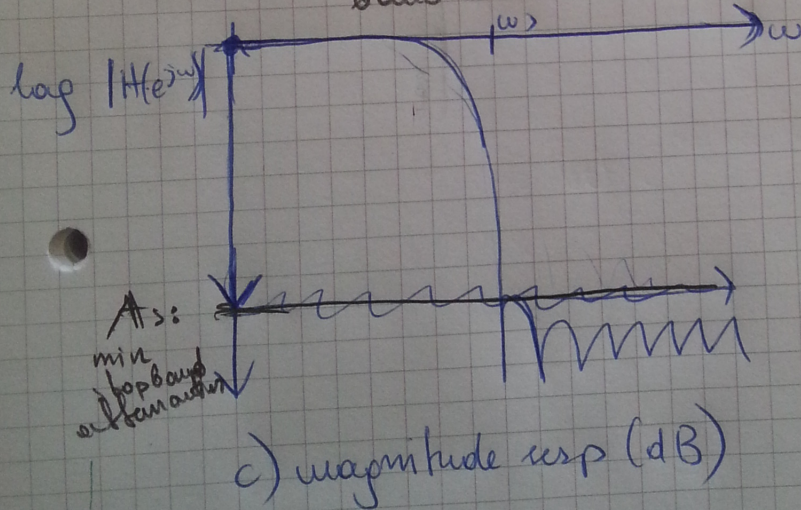 ωs
ω
log |H(e^jω)|
As:
min
stopband
attenuation
c) magnitude resp (dB)